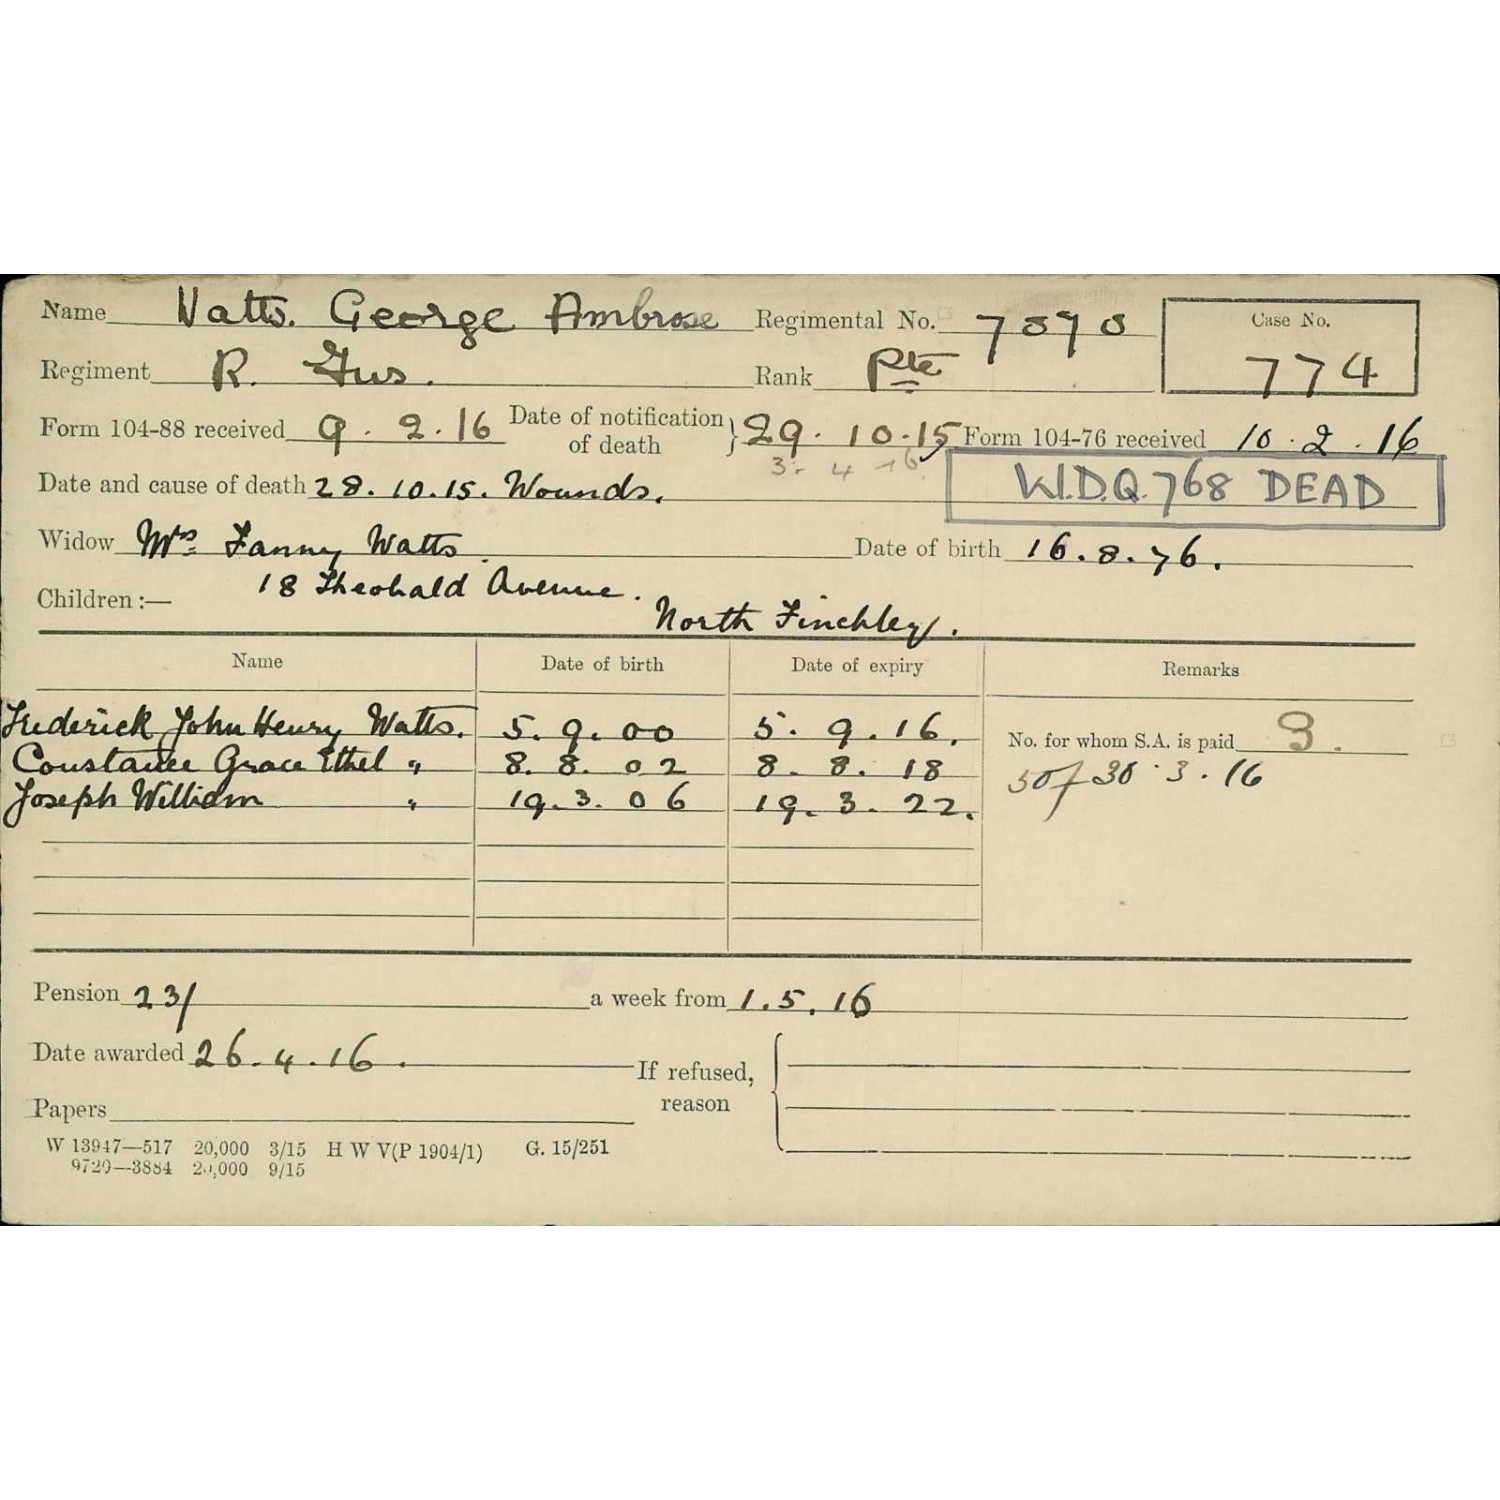 Name Watts. George Ambrose Regimental No. 7070 Case No. 774
Regiment R. Fus. Rank Pte
Form 104-88 received 9.2.16 Date of notification of death } 29.10.15 Form 104-76 received 10.2.16
3-4-16
Date and cause of death 28.10.15. Wounds. W.D.Q. 768 DEAD
Widow Mrs Fanny Watts Date of birth 16.8.76.
Children :— 18 Theobald Avenue.
North Finchley.
Name Date of birth Date of expiry Remarks
Frederick John Henry Watts. 5.9.00 5.9.16.
Constance Grace Ethel " 8.8.02 8.8.18 No. for whom S.A. is paid 3.
Joseph William " 19.3.06 19.3.22. 30.3.16
Pension 23/ a week from 1.5.16
Date awarded 26.4.16. If refused, reason
Papers
W 13947—517 20,000 3/15 H W V(P 1904/1) G. 15/251
9720—3884 20,000 9/15